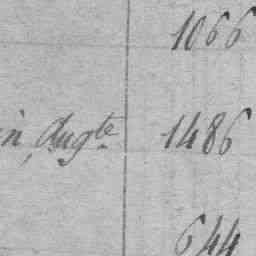 1066
in Aug.te 1486
644